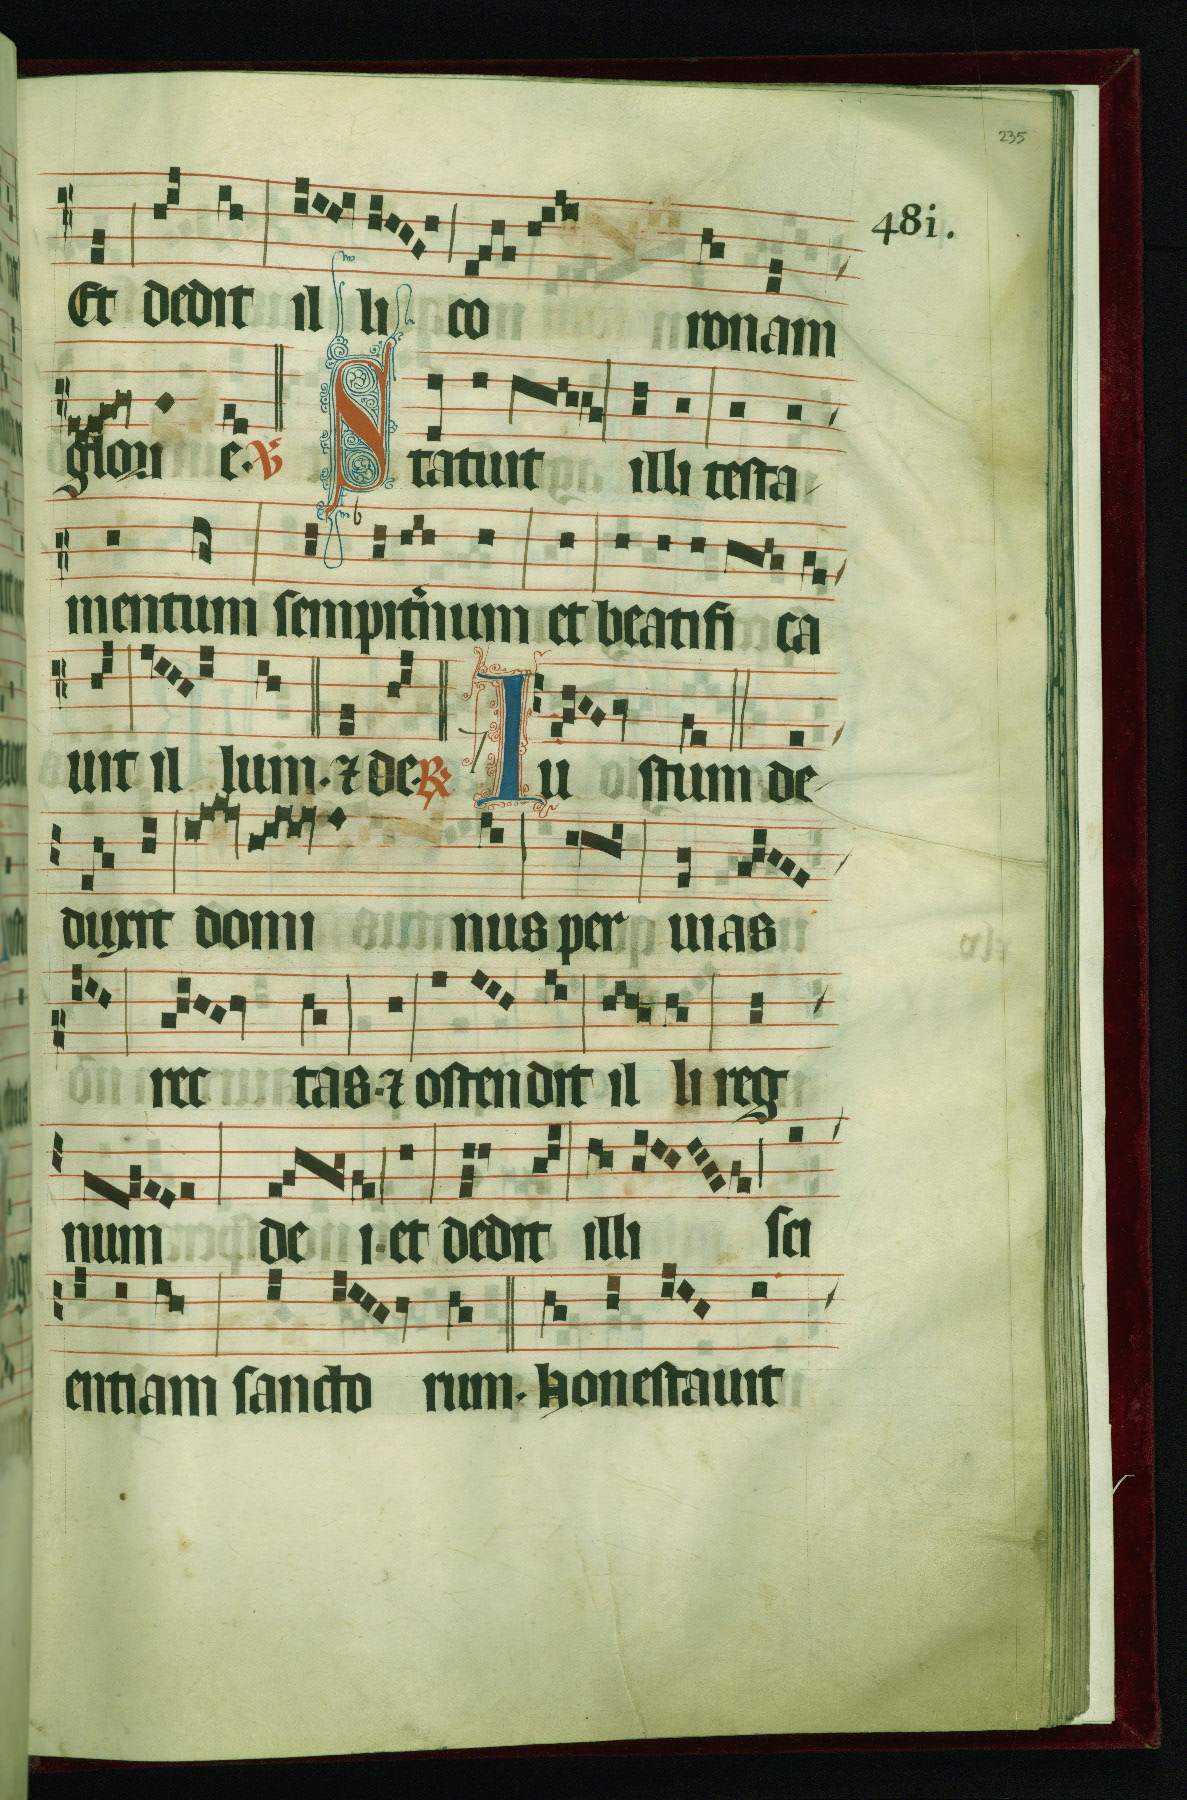 235
48i.
Et dedit il li co ronam
glorı e. ℣ Statuit illi testa
mentum sempit̃num et beatifi ca
uit il lum. ⁊ de. ℟ Iu stum de
duxit domi nus per uias
rec tas. ⁊ ostendit il li reg
num de i. et dedit illi sci
entiam sancto rum. honestauit